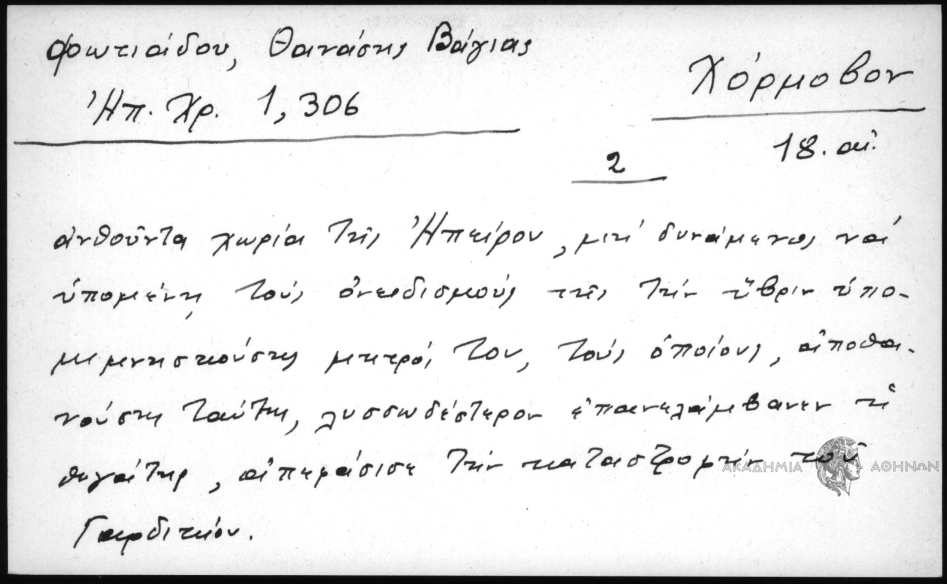 Φωτιάδου, Θανάσης Βάγιας
Ἠπ. Χρ. 1, 306
Χόρμοβον
18. αἰ.
2
ἀνθοῦντα χωρία τῆς Ἠπείρου, μή δυνάμενος νά
ὑπομένῃ τούς ὀνειδισμούς τῆς τήν ὕβριν ὑπο-
μεμνηστκούσης μητρός του, τούς ὁποίους, ἀποθα-
νούσης ταύτης, λυσσωδέστερον ἐπανελάμβανεν ἡ
θυγάτηρ, ἀπεφάσισε τήν καταστροφήν τοῦ
Γαρδικίου.
ΑΚΑΔΗΜΙΑ ΑΘΗΝΩΝ